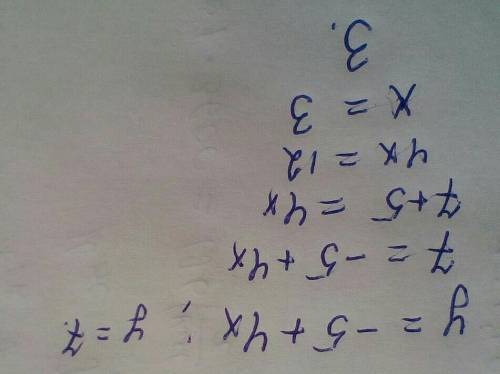 y = -5 + 4x ; y = 7.
7 = -5 + 4x
7+5 = 4x
4x = 12
x = 3
3.